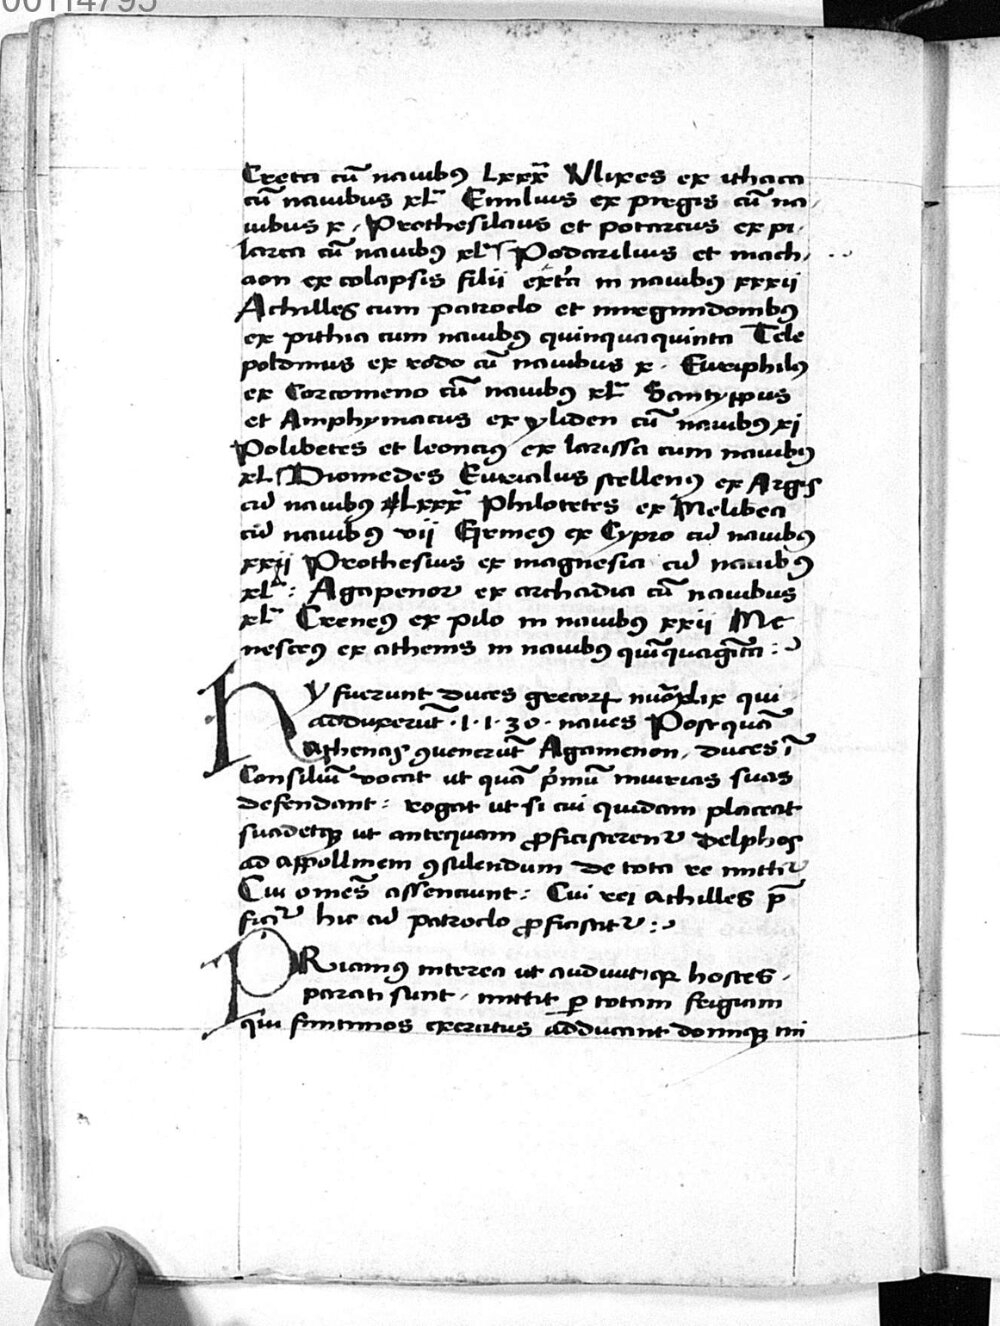 00114795
Creta cū nauibꝯ Lxxx Vlixes ex ithaca
cū nauibus xl Emlius ex pregis cū na
uibus x. Prothesilaus et potarcus ex pi
larca cū nauibꝯ xl Podarilius et mach
aon ex colapsis filii in nauibꝯ xxxii
Achilles cum patroclo et mregmidonibꝯ
ex pithia cum nauibꝯ quinquaquinta Tele
poldmus ex rodo cū nauibus x. Euriphilꝯ
ex Corcomeno cū nauibꝯ xl Santyppus
et Amphymacus ex yliden cū nauibꝯ xj
Polibetes et leonciꝯ ex larissa cum nauibꝯ
xl Diomedes Eurialus stellenꝯ ex Argis
cū nauibꝯ Lxxx Philotetes ex Melibea
cū nauibꝯ vij Gremeꝯ ex Cypro cū nauibꝯ
xxij Prothesius ex magnesia cū nauibꝯ
xl : Agapenor ex archadia cū nauibus
xl Creneꝯ ex pilo in nauibꝯ xxij Me
nesceꝯ ex athenis in nauibꝯ
Hy fuerunt duces grecoꝝ xlix qui
adduxerūt .1.1.30. naues Post quā
Athenas ꝯuenerūt Agamenon duces ī
Consiliū vocat ut quā p̄mū iniurias suas
defendant : rogat ut si cui quidam placeat
suadetqꝫ ut antequam ꝓficisceren̄ Delphos
ad appollinem ꝯsulendum de tota re
Cui omēs assenciunt : Cui rei achilles p̄
hic cū patroclo
PRiamꝯ interea ut audiuit hostes.
parati sunt. mittit ꝑ totam frigiam
qui finitimos exercitus adducant domiqꝫ mi